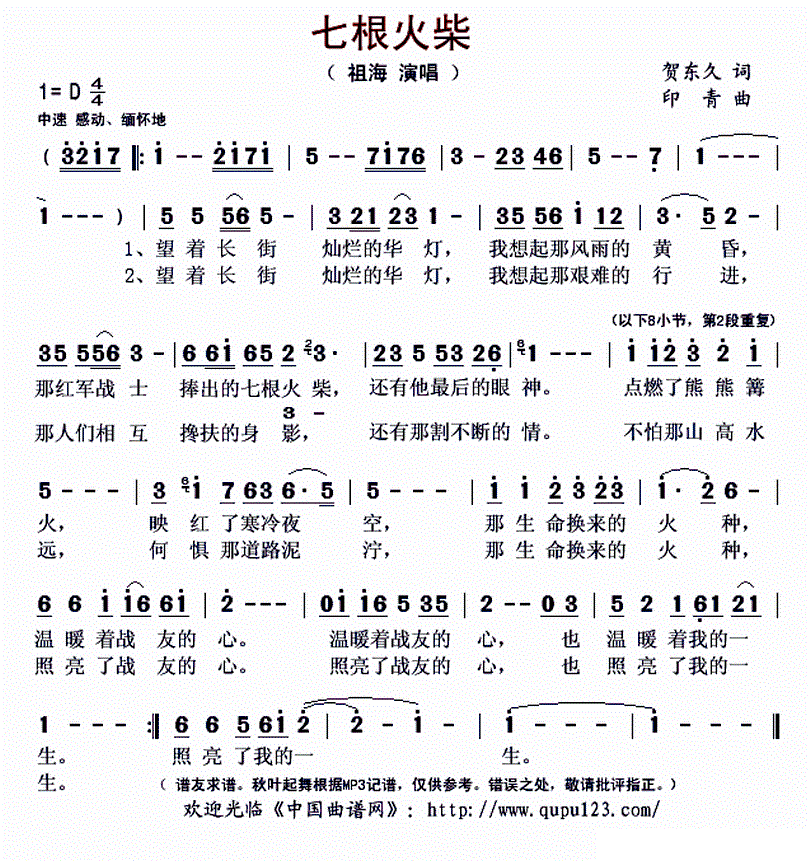 七根火柴
（ 祖海 演唱 ）
贺东久 词
1= D 4/4
印 青 曲
中速 感动、缅怀地
( 3217 ‖: 1 - - 2171 | 5 - - 7176 | 3 - 23 46 | 5 - - 7 | 1 - - -
1 - - - ) | 5 5 56 5 - | 3 21 23 1 - | 35 56 1 12 | 3· 5 2 - |
1、望 着 长 街 灿烂的华 灯， 我想起那风雨的 黄 昏，
2、望 着 长 街 灿烂的华 灯， 我想起那艰难的 行 进，
（以下8小节，第2段重复）
35 556 3 - | 6 61 65 2 2 3· | 23 5 53 26 | 6 1 - - - | 1 12 3 2 1 |
那红军战 士 捧出的七根火 柴， 还有他最后的眼 神。 点燃了熊 熊 篝
3 -
那人们相 互 搀扶的身 影， 还有那割不断的 情。 不怕那山 高 水
5 - - - | 3 6 1 7 63 6·5 | 5 - - - | 1 1 2 3 23 | 1· 2 6 - |
火， 映 红 了寒冷夜 空， 那 生 命换来的 火 种，
远， 何 惧 那道路泥 泞， 那 生 命换来的 火 种，
6 6 1 16 61 | 2 - - - | 01 16 5 35 | 2 - - 0 3 | 5 2 1 61 21 |
温 暖 着战 友的 心。 温暖着战友的 心， 也 温 暖 着我的一
照 亮 了战 友的 心。 照亮了战友的 心， 也 照 亮 了我的一
1 - - - :‖ 6 6 5 61 2 | 2 - 2 - 1 - | 1 - - - | 1 - - - ‖
生。 照 亮 了我的一 生。
生。 （ 谱友求谱。秋叶起舞根据MP3记谱，仅供参考。错误之处，敬请批评指正。）
欢迎光临《中国曲谱网》：http://www.qupu123.com/